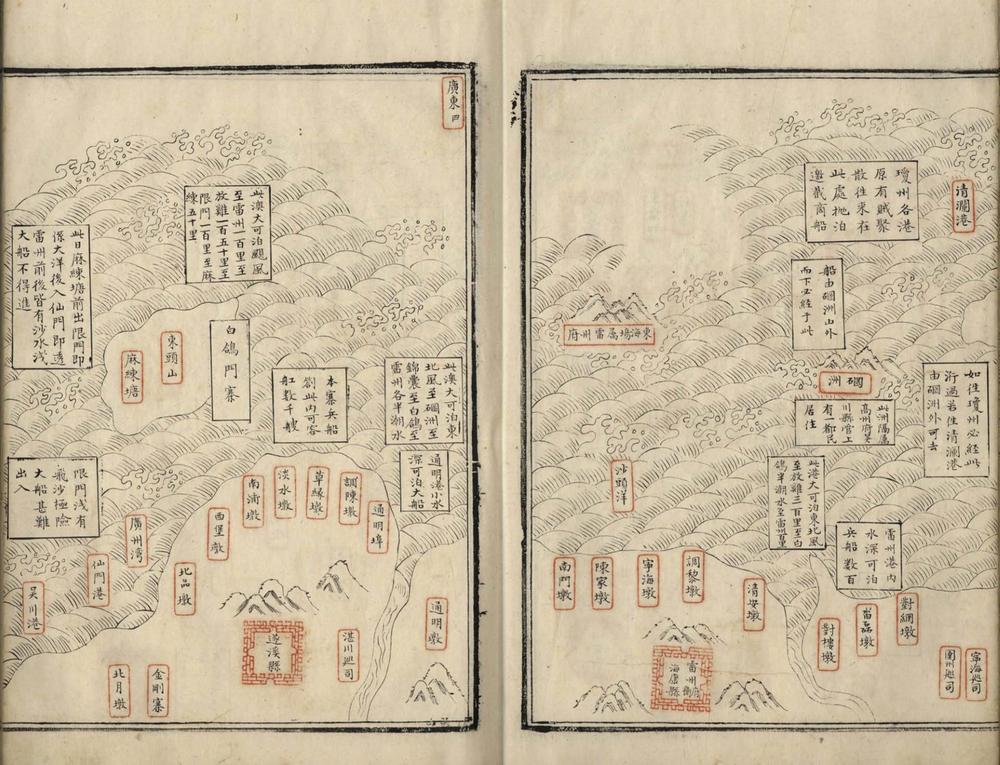 清瀾港
瓊州各港
原有賊聚
散往來在
此處拋泊
邀截商船
船由硇洲山外
而下必經于此
如往瓊州必經此
洐過若往清瀾港
由硇洲外可去
東海場属雷州府
硇洲
此洲隔屬
高州府吴
川縣管上
有人鄉民
居住
此港大可泊東北風
至放雞三百里至白
鴿半潮水至雷州
雷州港内
水深可泊
兵船数百
沙頭洋
調黎墩
寧海墩
陳家墩
南門墩
清安墩
對網墩
畄磊墩
對樓墩
寧海廵司
廵司
雷州府衛
海康縣
廣東四
此澳大可泊颶風
至雷州一百里至
放雞一百五十里至
限門一百里至麻
練五十里
此日麻練塘前出限門即
係大洋後入仙門即透
雷州前後皆有沙水浅
大船不得進
白鴿門寨
東頭山
麻練塘
本寨兵船
劄此内可容
舡数千艘
此澳大可泊東
北風至硇洲至
錦囊至白鴿至
雷州各半潮水
通明港小水
深可泊大船
限門浅有
飛沙極險
大船甚難
出入
通明埠
調陳墩
草緣墩
淡水墩
南浦墩
西堡墩
北品墩
廣州湾
仙門港
吴川港
通明墩
湛川廵司
遂溪縣
金剛寨
北月墩